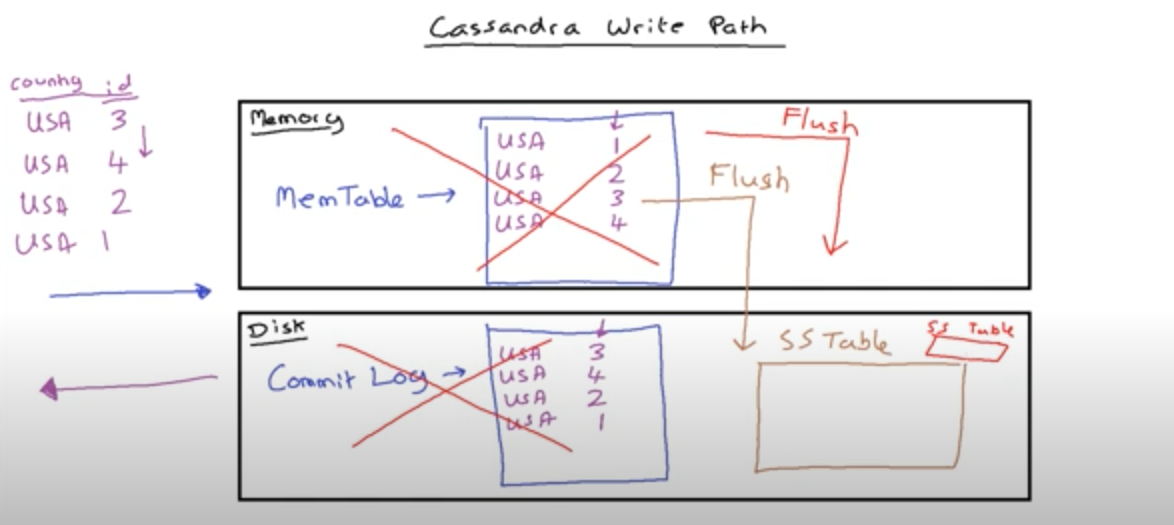 Cassandra Write Path
country id
USA 3
USA 4
USA 2
USA 1
Memory
MemTable →
USA 1
USA 2
USA 3
USA 4
Flush
Flush
Disk
Commit Log →
USA 3
USA 4
USA 2
USA 1
SS Table
SS Table